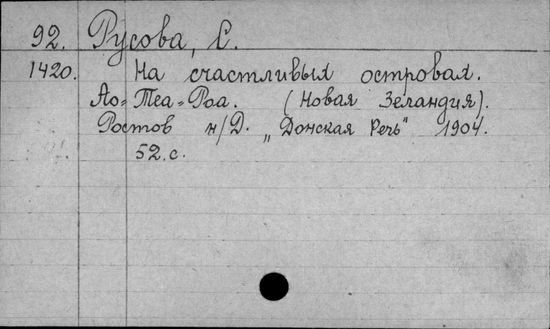 92. Русова, С.
1420. На счастливых островах.
Ао-Теа-Роа. (Новая Зеландия).
Ростов н/Д. „Донская Речь" 1904.
52. с.